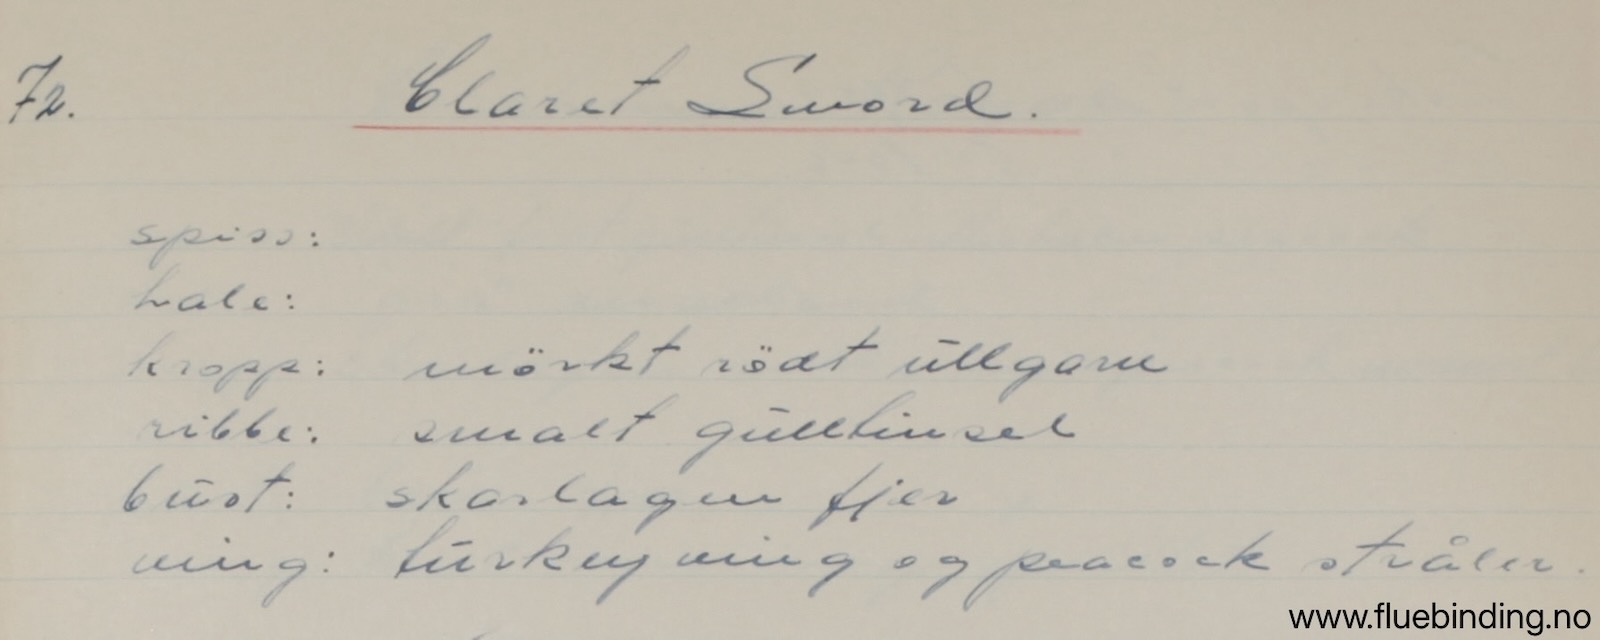 72. Claret Sword.
spiss:
hale:
kropp: mörkt rödt ullgarn
ribbe: smalt gulltinsel
bust: skarlagen fjer
ving: turkey ving og peacock stråler.
www.fluebinding.no